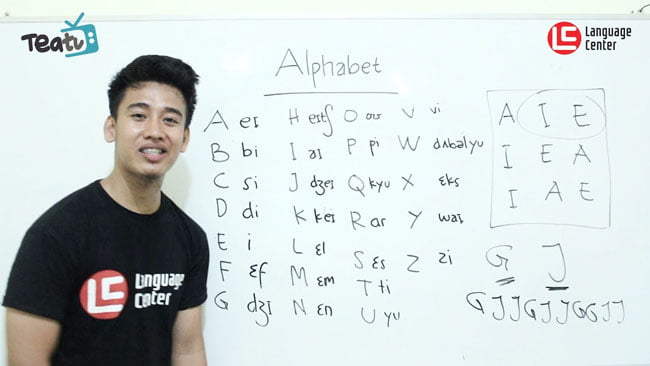 Teatv
LC Language Center
Alphabet
A eɪ
B bi
C si
D di
E i
F ɛf
G dʒɪ
H eɪtʃ
I aɪ
J dʒeɪ
K keɪ
L ɛl
M ɛm
N ɛn
O oʊ
P pi
Q kyu
R ar
S ɛs
T ti
U yu
V vi
W dʌbəlyu
X ɛks
Y waɪ
Z zi
A I E
I E A
I A E
G J
G J J G J J G G J J
LC Language Center